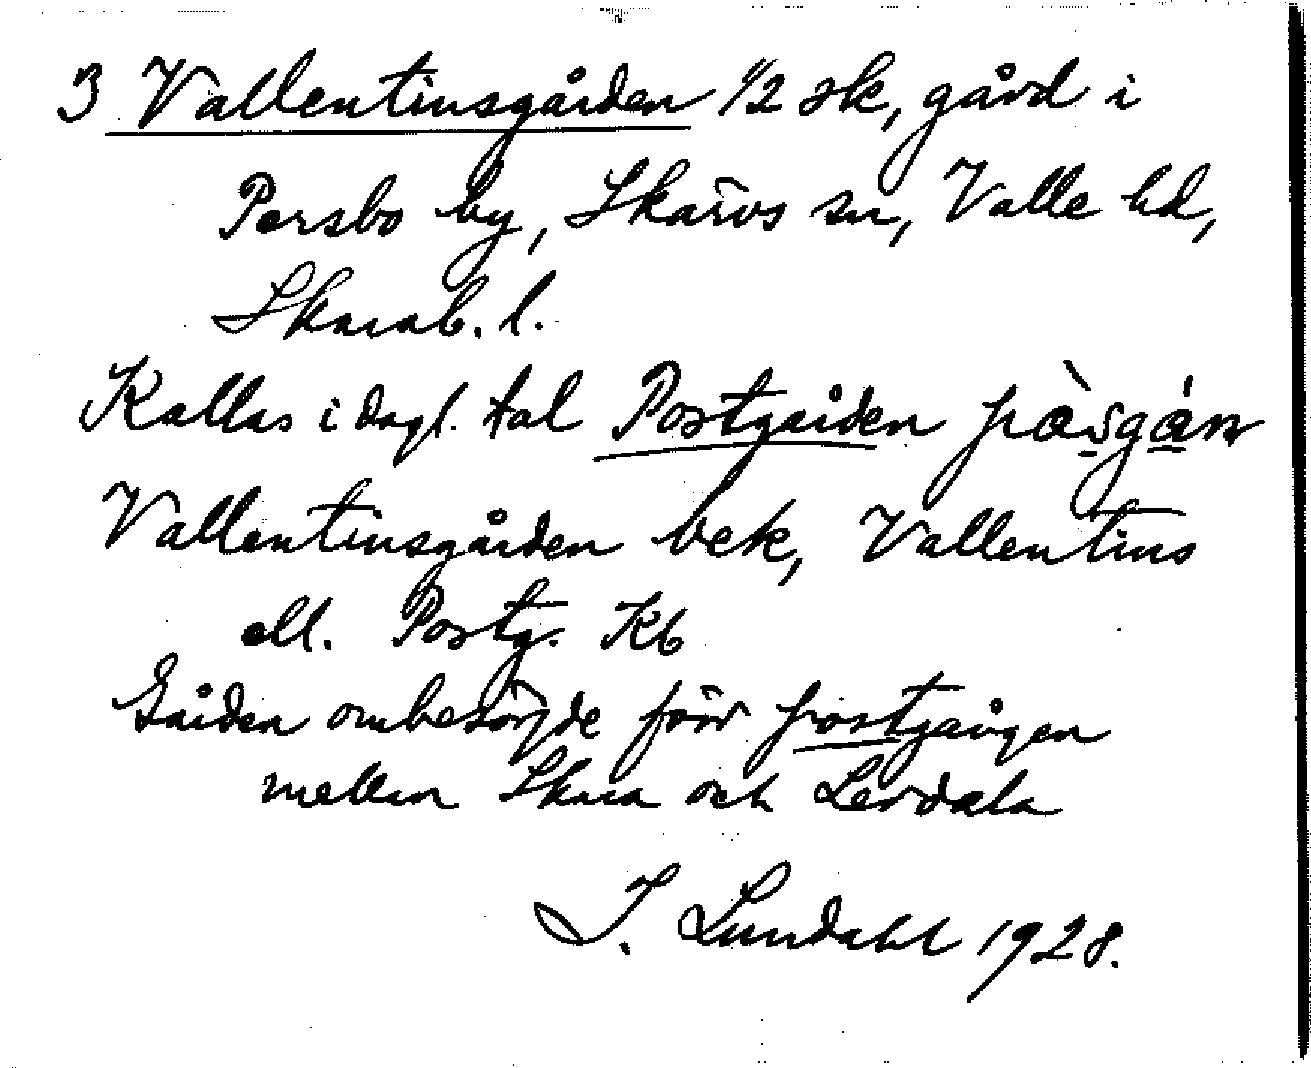 3 Vallentinsgården 1/2 sk, gård i
Persbo by, Skärvs sn, Valle hd,
Skarab. l.
Kallas i dagl. tal Postgården
Vallentinsgården bek, Vallentins
ell. Postg. Kb
Gården ombesörjde förr postgången
mellan Skara och Lerdala
I. Lundahl 1928.